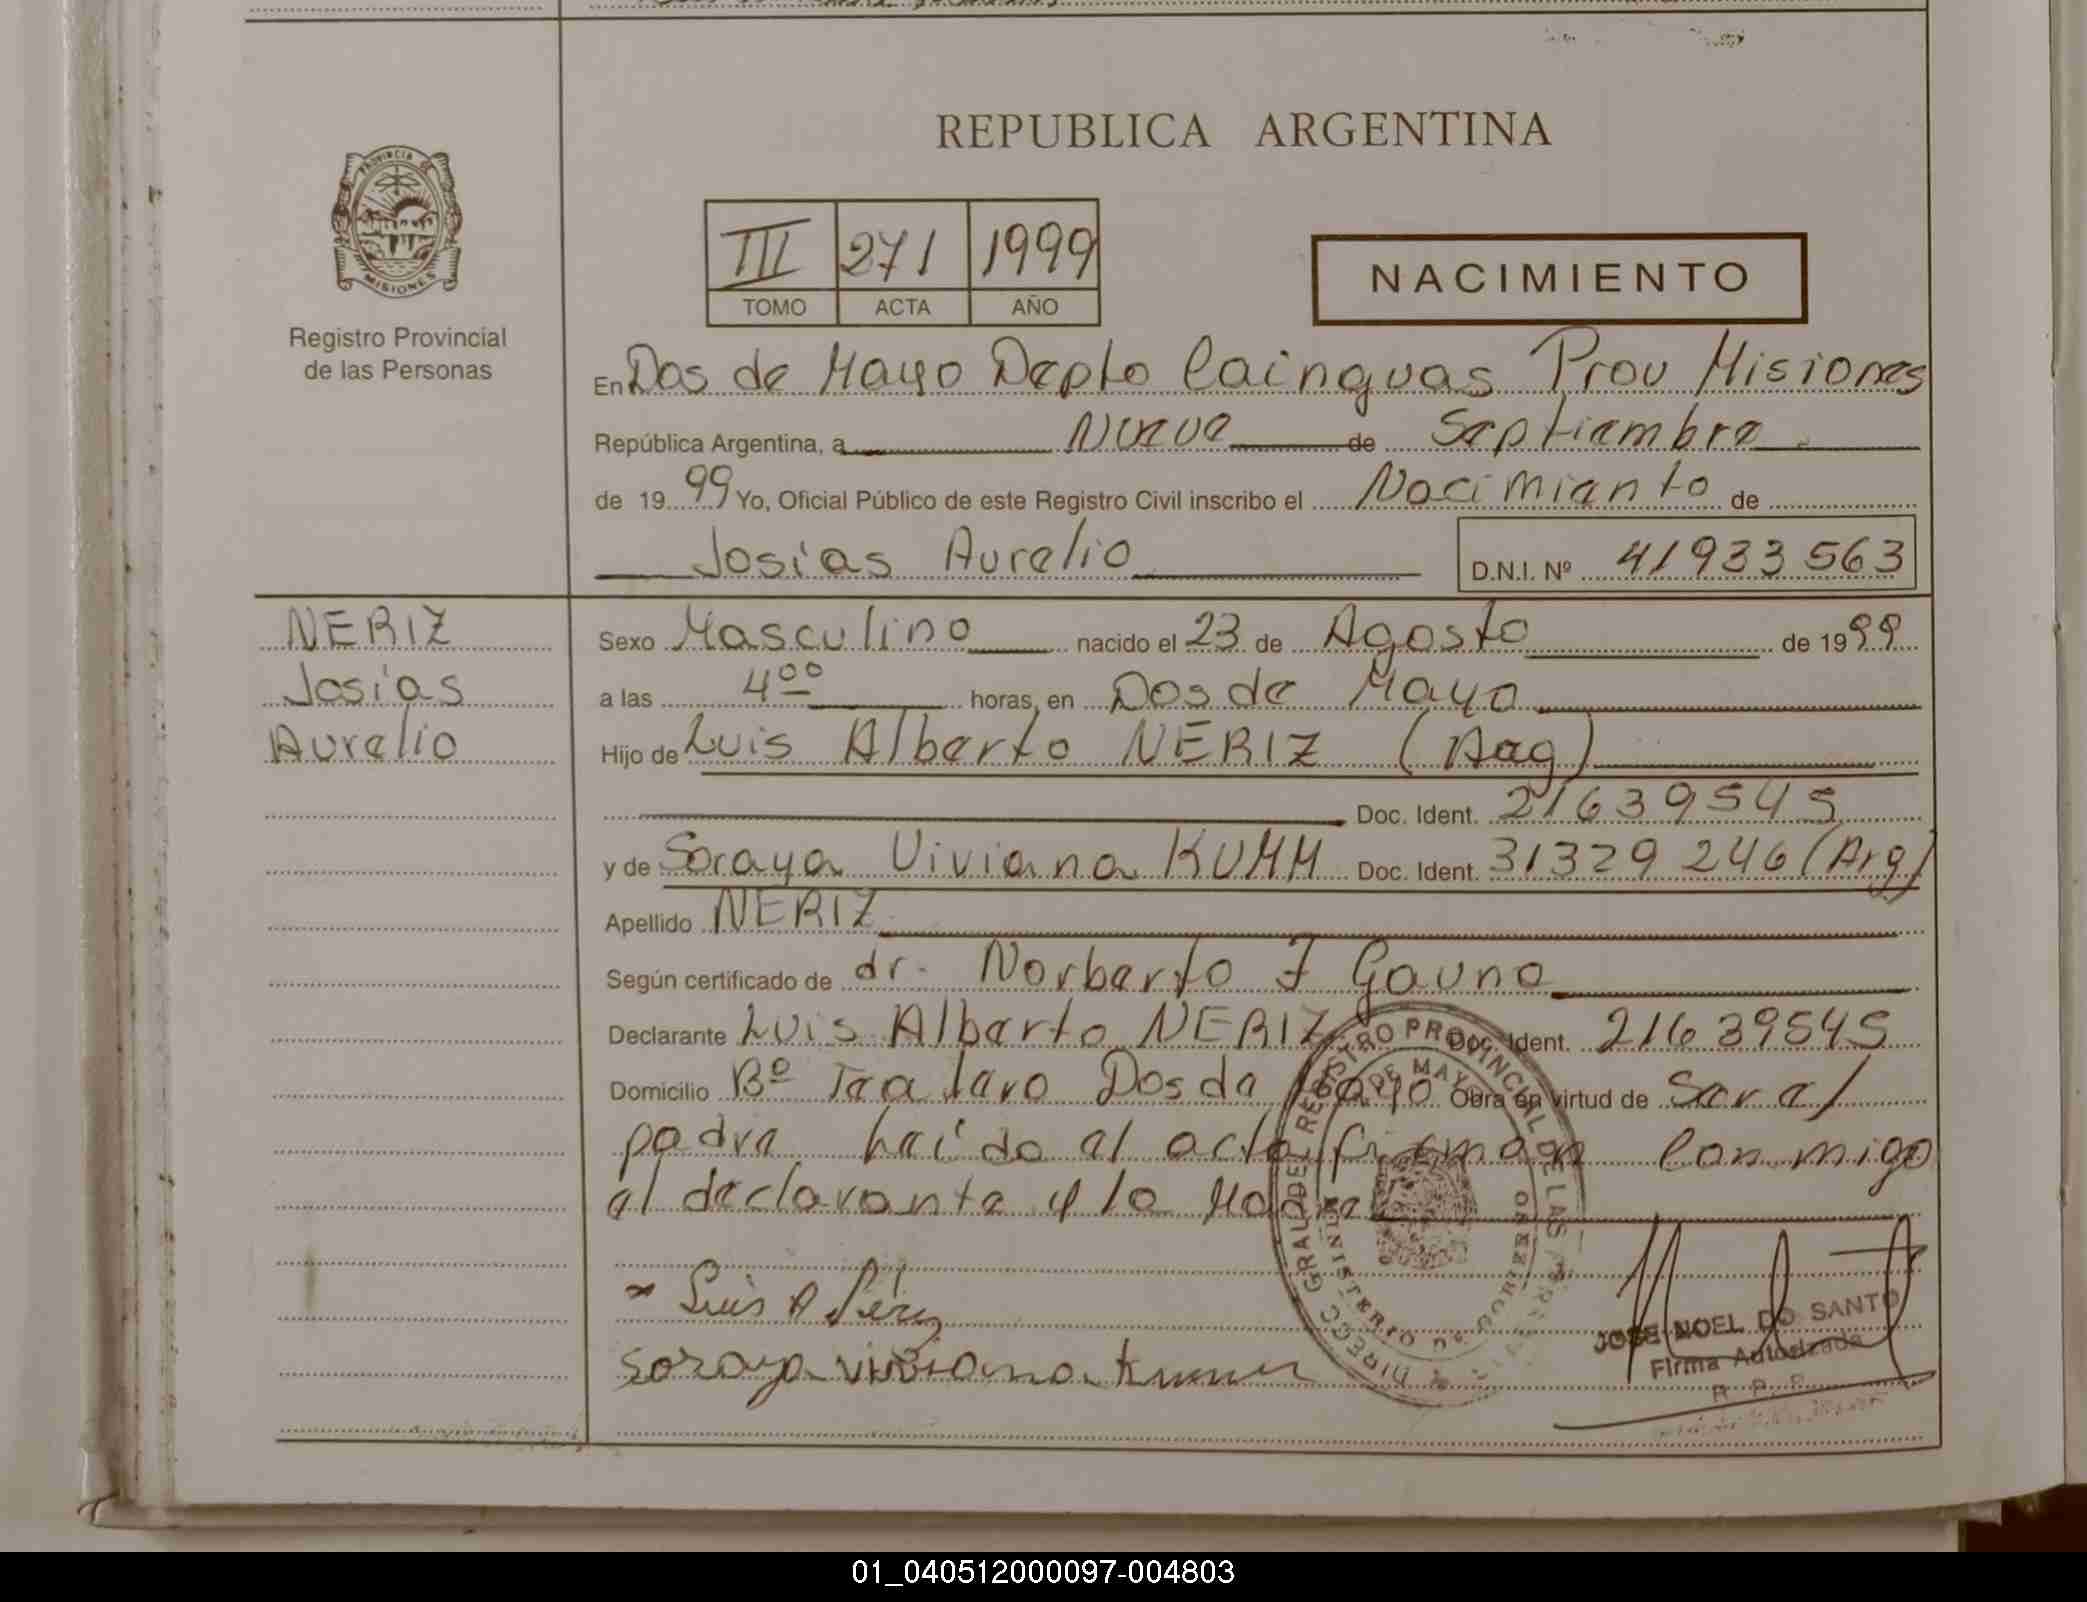 REPUBLICA ARGENTINA
PROVINCIA DE MISIONES
Registro Provincial
de las Personas
III 271 1999
TOMO ACTA AÑO
NACIMIENTO
En Dos de Mayo Depto Cainguas Prov Misiones
República Argentina, a Nueve de Septiembre
de 1999 Yo, Oficial Público de este Registro Civil inscribo el Nacimiento de
Josias Aurelio D.N.I. Nº 41933563
NERIZ
Josias
Aurelio
Sexo Masculino nacido el 23 de Agosto de 1999
a las 4ºº horas, en Dos de Mayo
Hijo de Luis Alberto NERIZ (Arg)
Doc. Ident. 21639545
y de Soraya Viviana KUMM Doc. Ident. 31329246 (Arg)
Apellido NERIZ
Según certificado de dr. Norberto F Gauna
Declarante Luis Alberto NERIZ Doc. Ident. 21639545
Domicilio Bº Dos de Mayo Obra en virtud de Ser el
padre leido el acta firman conmigo
el declarante y la Madre
Luis A
Soraya Viviana Kumm
DIRECC GRAL DE REGISTRO PROVINCIAL DE LAS
DE MAYO
MINISTERIO DE GOBIERNO
JOSE NOEL DO SANTO
Firma Autorizada
R. P. P.
01_040512000097-004803